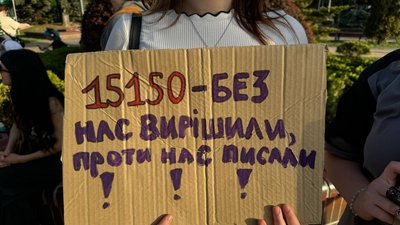 15150-БЕЗ
НАС ВИРІШИЛИ,
ПРОТИ НАС ПИСАЛИ
! ! !